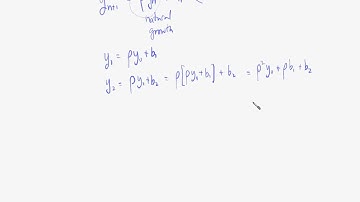 yₙ₊₁ =
natural
growth
y₁ = ρy₀+b₁
y₂ = ρy₁+b₂ = ρ[ρy₀+b₁]+b₂ = ρ²y₀+ρb₁+b₂